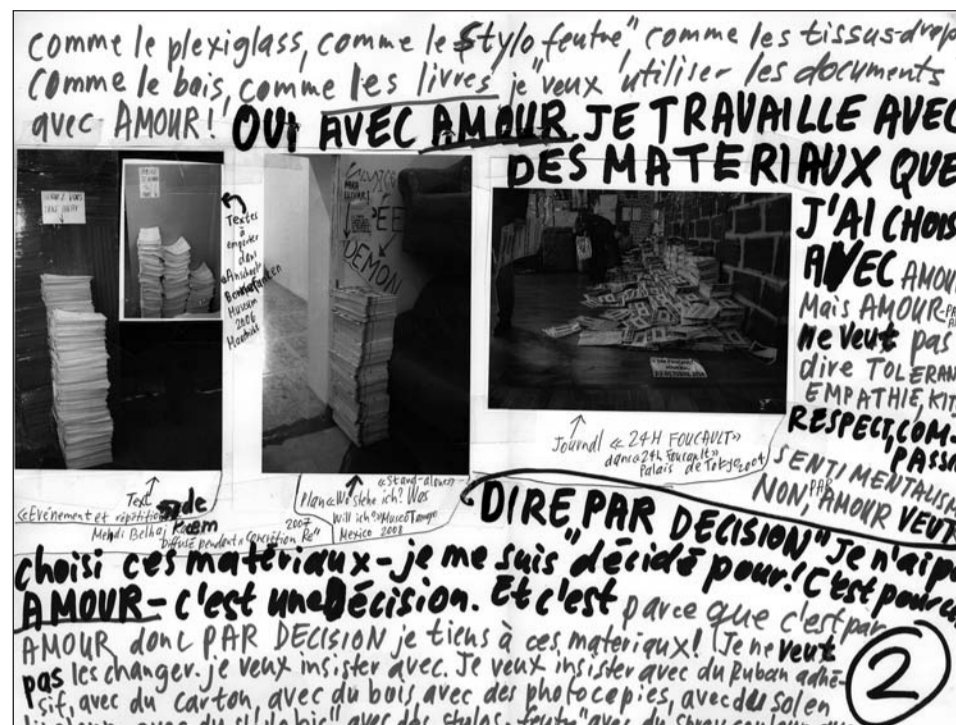 comme le plexiglass, comme le "stylo feutre", comme les tissus-drap
comme le bois, comme les livres je "veux" utiliser les documents
avec AMOUR! OUI AVEC AMOUR. JE TRAVAILLE AVEC
DES MATERIAUX QUE
J'AI CHOIS
AVEC AMOUR
Mais AMOUR
ne veut pas
dire TOLERAN
EMPATHIE, KIT
RESPECT, COM-
PASS
SENTIMENTALISM
NON, AMOUR VEUT
Textes
à
emporter
dans
«Anschool»
Bonnefanten
Museum
2006
Maastricht
DEMON
Journal «24H FOUCAULT»
dans «24h Foucault»
Palais de Tokyo, 2004
Text de
«Evénement et répétition»
Mehdi Belhaj Kacem 2007
Diffusé pendant «Concrétion Re»
«Stand-alone»
Plan «Wo stehe ich? Was
will ich?» Museo Tamayo
Mexico 2008
DIRE "PAR DECISION" Je n'ai pa
choisi ces matériaux - je me suis "décidé pour"! C'est pour ce
AMOUR - c'est une Décision. Et c'est parce que c'est par
AMOUR donc PAR DECISION je tiens à ces materiaux! Je ne veut
pas les changer. je veux insister avec. Je veux insister avec du Ruban adhé-
sif, avec du carton, avec du bois avec des photocopies, avec du sol en
2